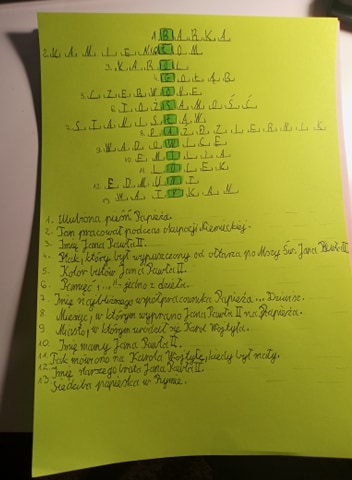 1. B A R K A
2. K A M I E N I O Ł O M
3. K A R O L
4. G O Ł Ą B
5. C Z E R W O N E
6. T O Ż S A M O Ś Ć
7. S T A N I S Ł A W
8. P A Ź D Z I E R N I K
9. W A D O W I C E
10. E M I L I A
11. L O L E K
12. E D M U N D
13. W A T Y K A N
1. Ulubiona pieśń Papieża.
2. Tam pracował podczas okupacji Niemieckiej.
3. Imię Jana Pawła II.
4. Ptaki, który był wypuszczony od ołtarza po Mszy Św. Jana Pawła II.
5. Kolor butów Jana Pawła II.
6. "Pamięć i ..."- jedno z dzieła.
7. Imię najbliższego współpracownika Papieża... Dziwisz.
8. Miesiąc, w którym wybrano Jana Pawła II na Papieża.
9. Miasto, w którym urodził się Karol Wojtyła.
10. Imię mamy Jana Pawła II.
11. Tak mówiono na Karola Wojtyłę, kiedy był mały.
12. Imię starszego brata Jana Pawła II.
13. Siedziba papieska w Rzymie.